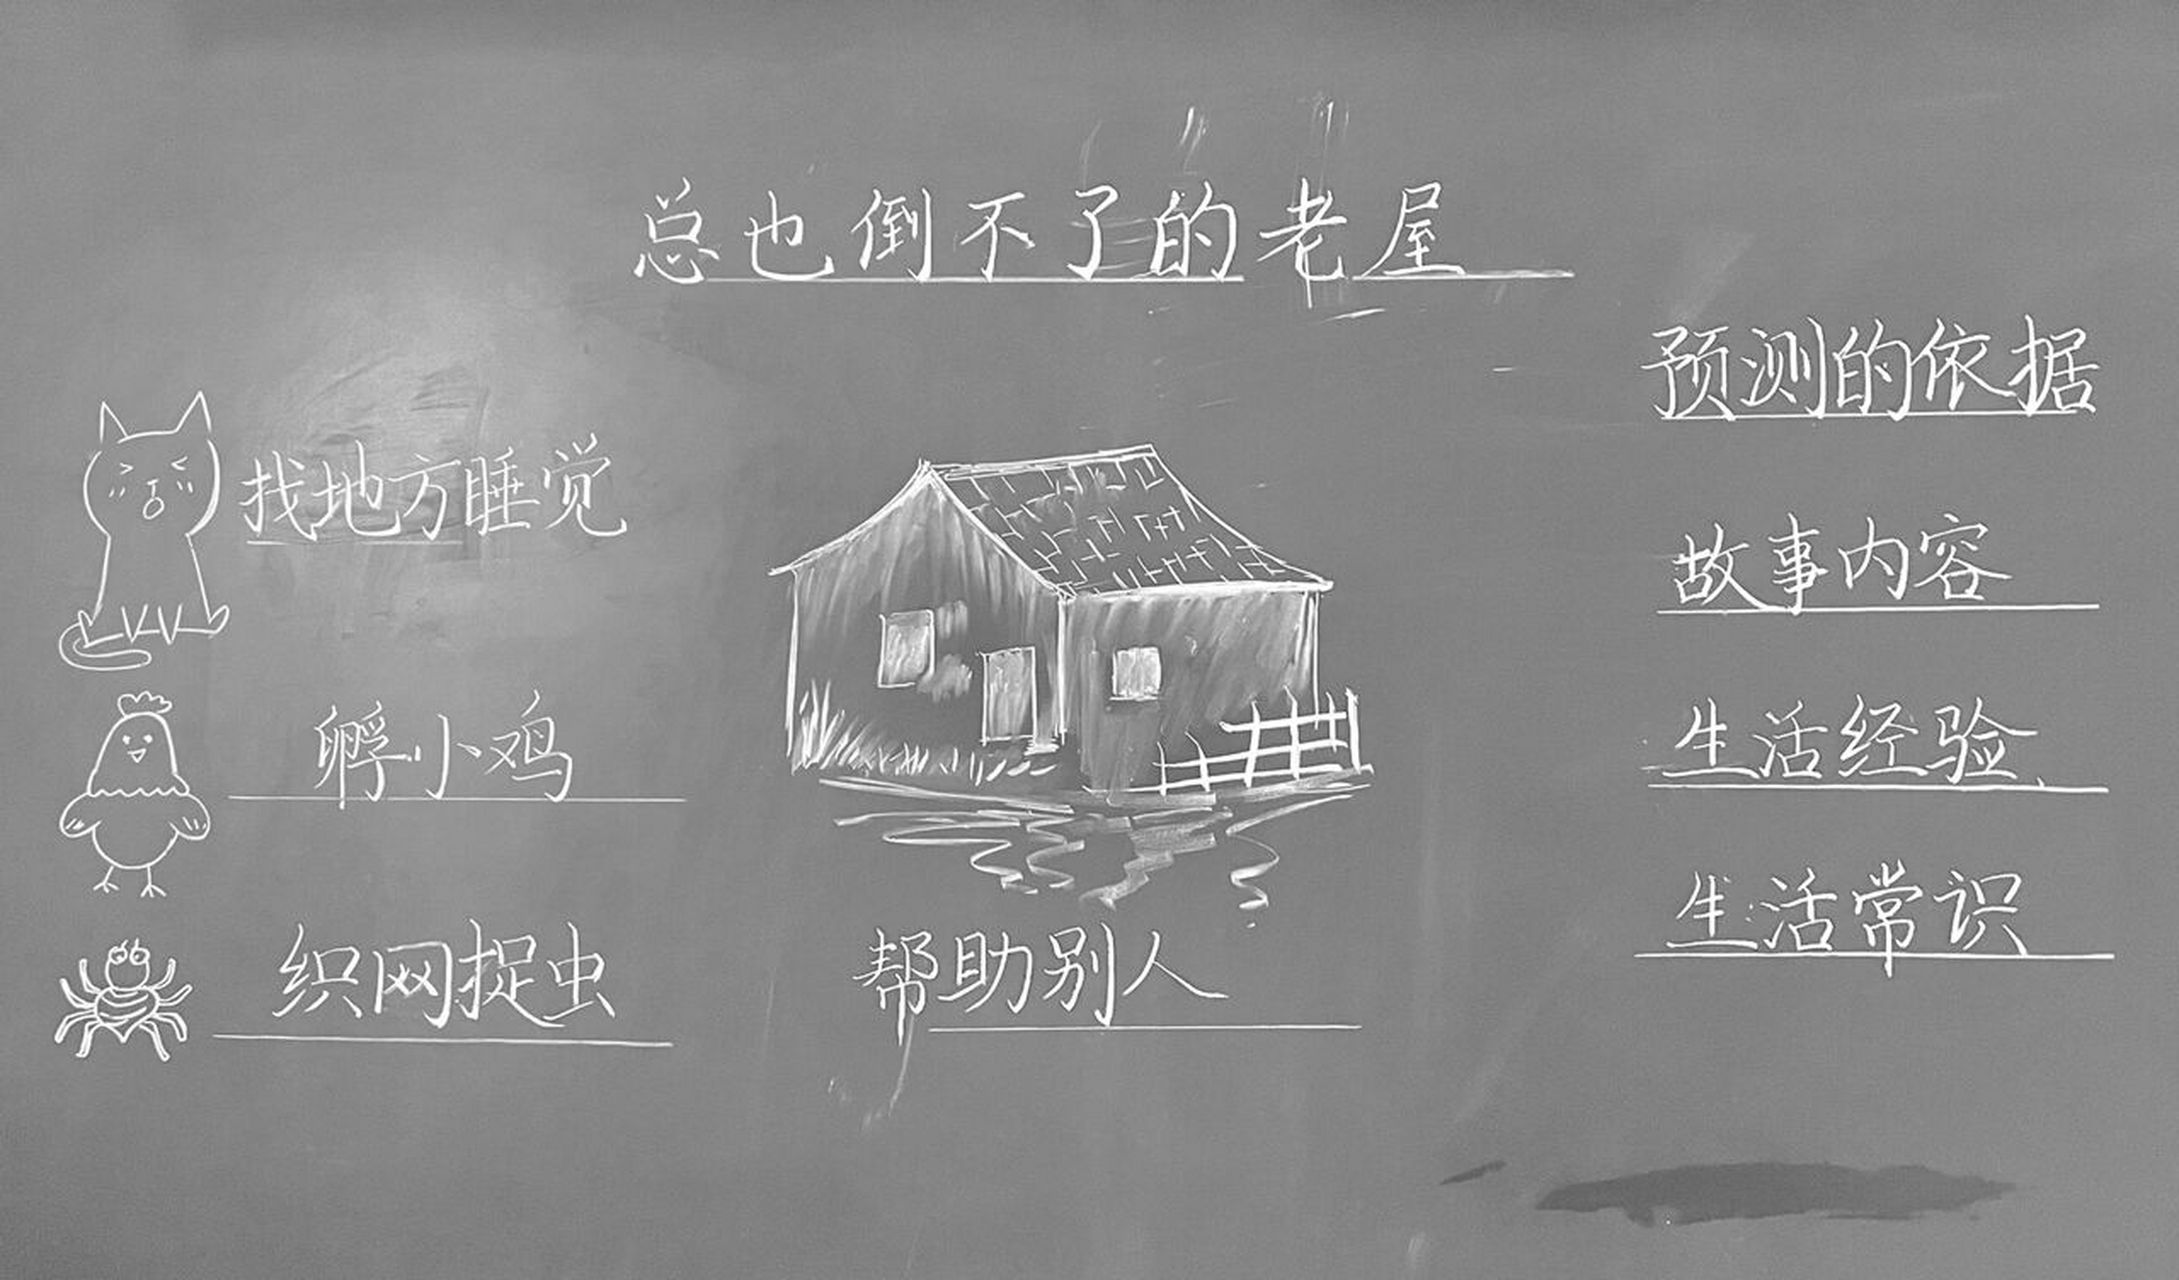 总也倒不了的老屋
找地方睡觉
孵小鸡
织网捉虫
帮助别人
预测的依据
故事内容
生活经验
生活常识